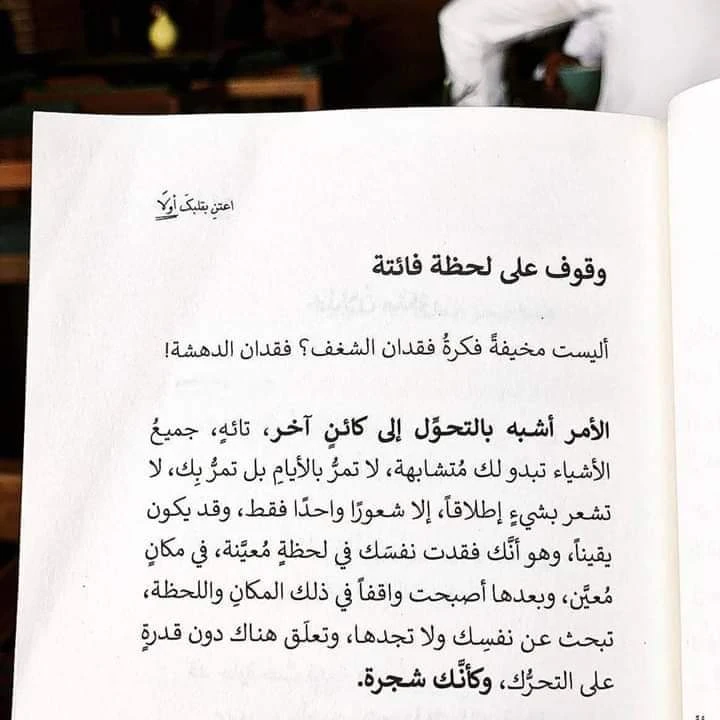 اعتنِ بقلبكَ أولًا
وقوف على لحظة فائتة
أليست مخيفةً فكرةُ فقدان الشغف؟ فقدان الدهشة!
الأمر أشبه بالتحوِّل إلى كائنٍ آخر، تائهٍ، جميعُ
الأشياء تبدو لك مُتشابهة، لا تمرُّ بالأيامِ بل تمرُّ بِك، لا
تشعر بشيءٍ إطلاقاً، إلا شعورًا واحدًا فقط، وقد يكون
يقيناً، وهو أنَّك فقدت نفسَك في لحظةٍ مُعيَّنة، في مكانٍ
مُعيَّن، وبعدها أصبحت واقفاً في ذلك المكانِ واللحظة،
تبحث عن نفسِك ولا تجدها، وتعلَق هناك دون قدرةٍ
على التحرُّك، وكأنَّك شجرة.